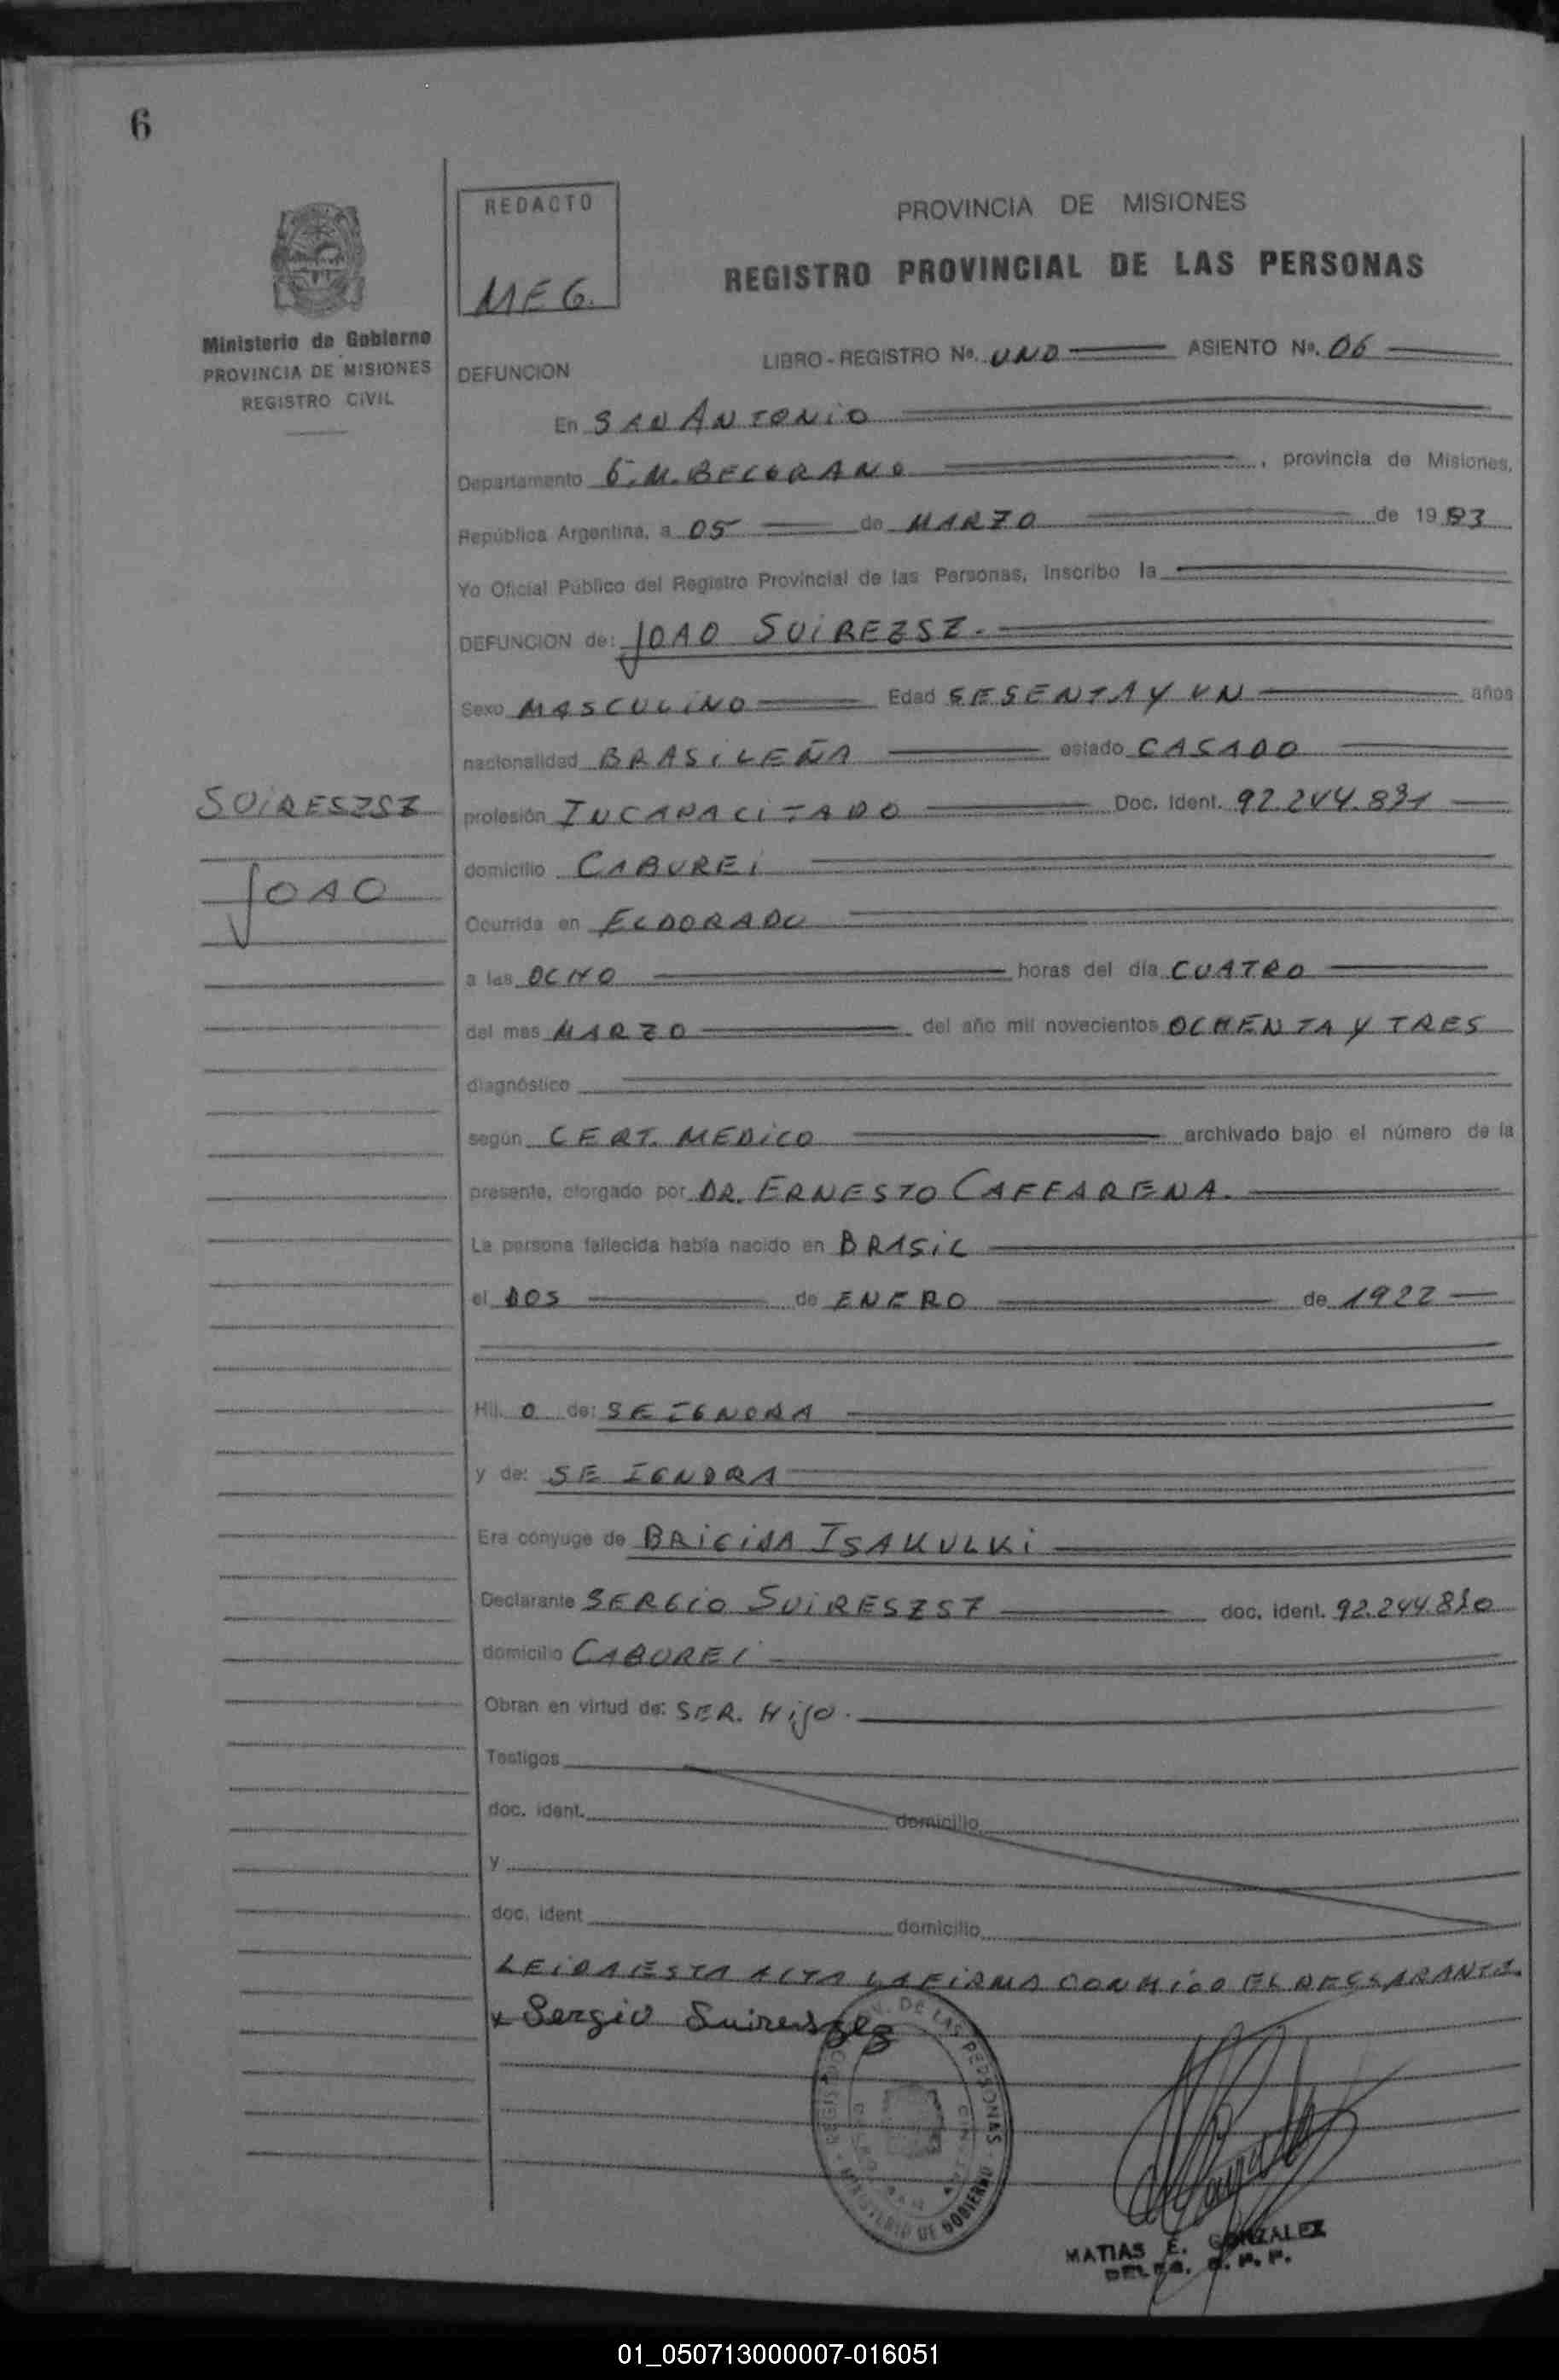 6
REDACTO
MEG.
PROVINCIA DE MISIONES
REGISTRO PROVINCIAL DE LAS PERSONAS
Ministerio de Gobierno
PROVINCIA DE MISIONES
REGISTRO CIVIL
DEFUNCION
LIBRO - REGISTRO Nº. UNO ASIENTO Nº. 06
En SAN ANTONIO
Departamento G.M. BELGRANO, provincia de Misiones,
República Argentina, a 05 de MARZO de 1983
Yo Oficial Público del Registro Provincial de las Personas, Inscribo la
DEFUNCION de: JOAO SUIREZSZ.
Sexo MASCULINO Edad SESENTA Y UN años
nacionalidad BRASILEÑA estado CASADO
SUIRESZSZ
JOAO
profesión INCAPACITADO Doc. Ident. 92.244.831
domicilio CABUREI
Ocurrida en ELDORADO
a las OCHO horas del día CUATRO
del mes MARZO del año mil novecientos OCHENTA Y TRES
diagnóstico
según CERT. MEDICO archivado bajo el número de la
presente, otorgado por DR. ERNESTO CAFFARENA.
La persona fallecida había nacido en BRASIL
el DOS de ENERO de 1922
Hij. O de: SE IGNORA
y de: SE IGNORA
Era cónyuge de BRIGIDA ISAKULKI
Declarante SERGIO SUIRESZSZ doc. ident. 92.244.830
domicilio CABUREI
Obran en virtud de: SER. HIJO.
Testigos
doc. ident. domicilio
y
doc. ident domicilio
LEIDA ESTA ACTA LA FIRMA CONMIGO EL DECLARANTE
x Sergio Suireszsz
DE LAS PERSONAS
MINISTERIO DE GOBIERNO
MATIAS E. GONZALEZ
01_050713000007-016051